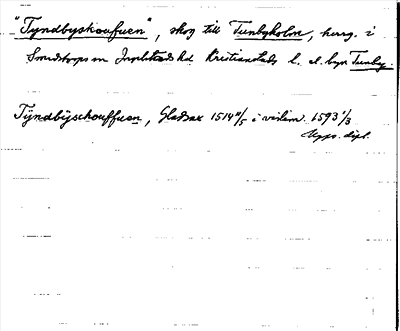 "Tyndbyskouffuen", skog till Tunbyholm, herrg. i
Smedstorps sn Ingelstads hd Kristianstads l. el. byn Tunby.
Tÿndbÿschouffuen, Gladsax 1514 4/5 i vidim. 1593 1/3
Upps. dipl.